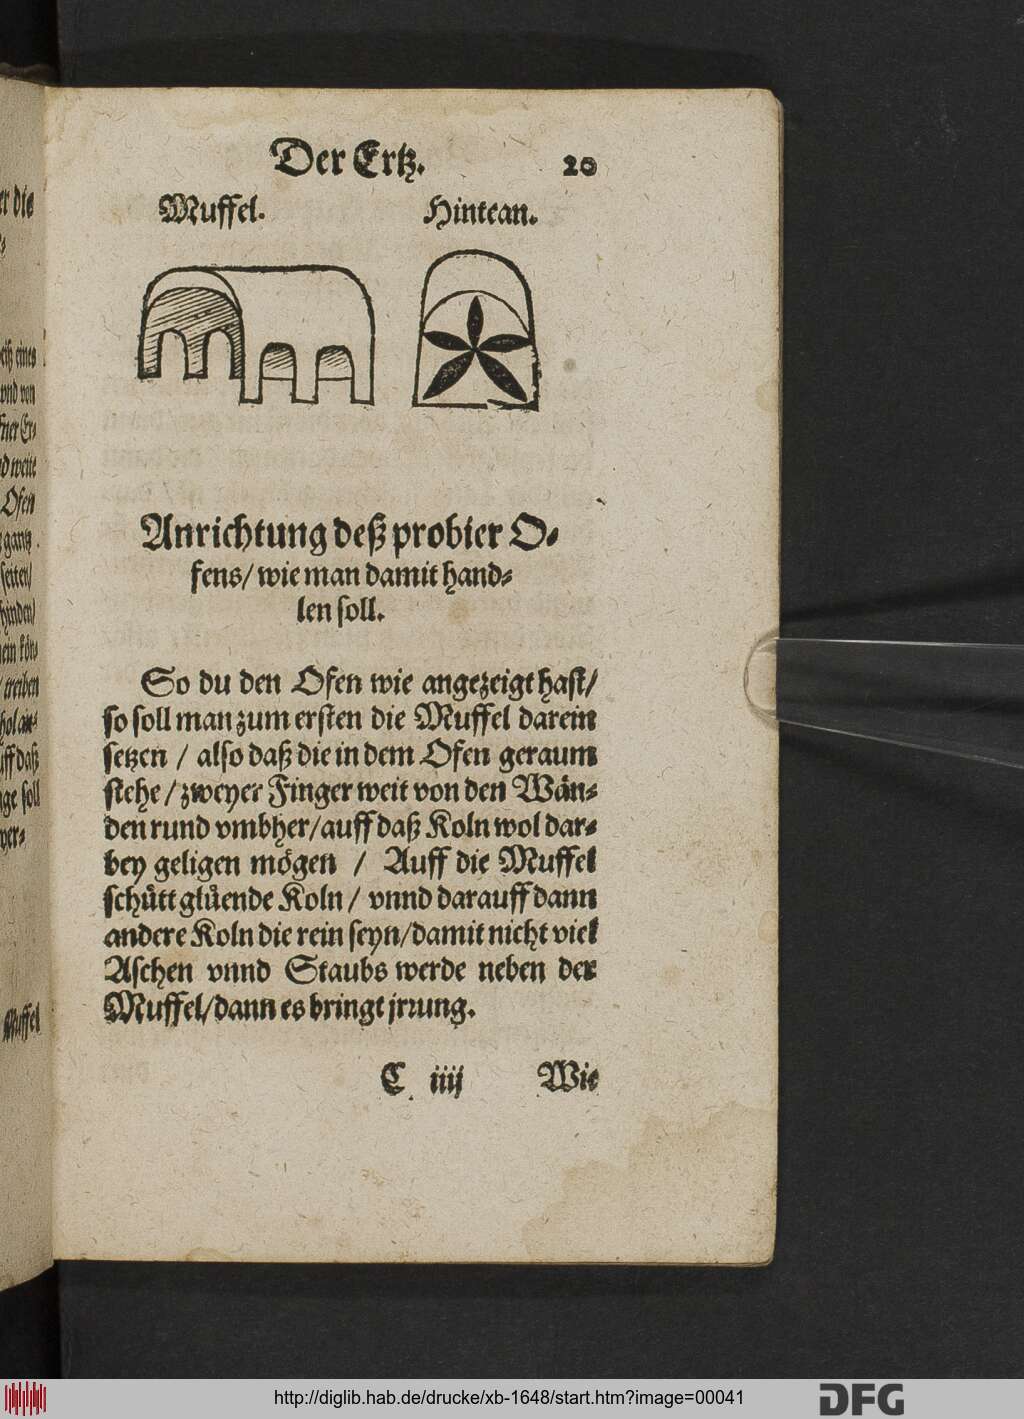 Der Ertz. 20
Muffel. Hintean.
Anrichtung deß probier O-
fens/ wie man damit hand-
len soll.
So du den Ofen wie angezeigt hast/
so soll man zum ersten die Muffel darein
setzen / also daß die in dem Ofen geraum
stehe / zweyer Finger weit von den Wän-
den rund vmbher/ auff daß Koln wol dar-
bey geligen mögen / Auff die Muffel
schütt glüende Koln / vnnd darauff dann
andere Koln die rein seyn/ damit nicht viel
Aschen vnnd Staubs werde neben der
Muffel/ dann es bringt jrrung.
C iiij Wie
er die
eiß eines
vnd von
ffner Er-
d weite
Ofen
gantz
seiten/
hinden/
ein kön-
treiben
hol an-
uff daß
ge soll
yer-
Muffel
http://diglib.hab.de/drucke/xb-1648/start.htm?image=00041
DFG